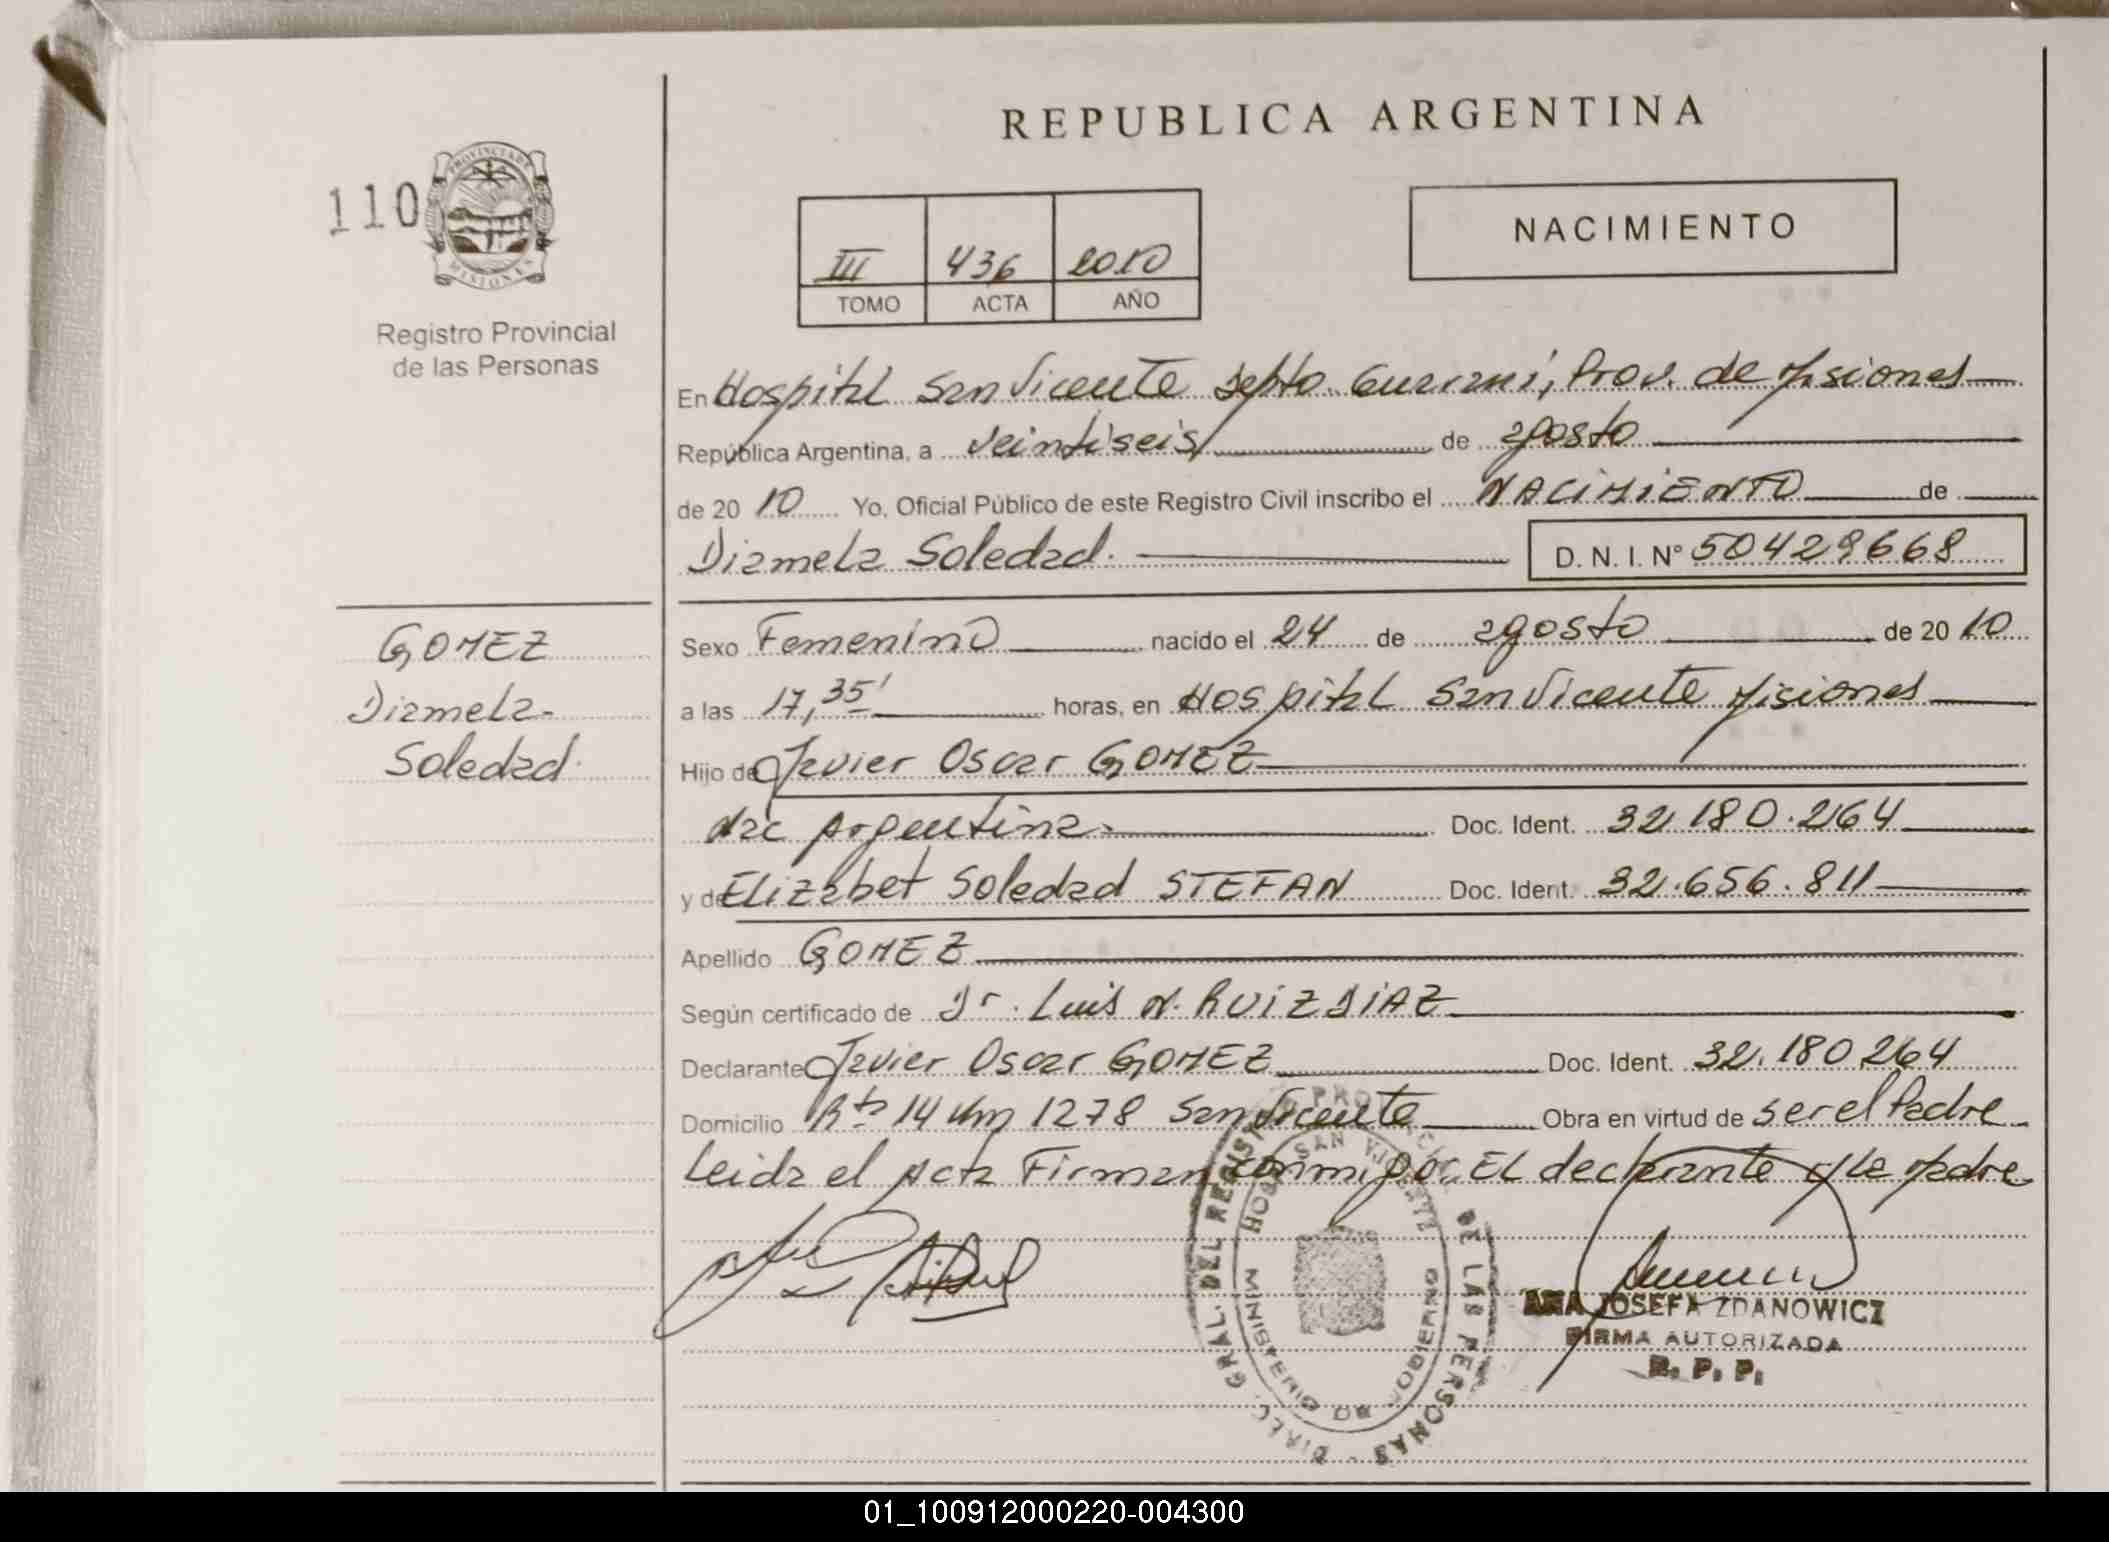 REPUBLICA ARGENTINA
110
PROVINCIA DE
MISIONES
Registro Provincial
de las Personas
III 436 2010
TOMO ACTA AÑO
NACIMIENTO
En Hospital San Vicente Depto. Guarani, Prov. de Misiones
República Argentina, a Veintiseis de agosto
de 20 10 Yo, Oficial Público de este Registro Civil inscribo el NACIMIENTO de
Diamela Soledad. D. N. I. Nº 50429668
GOMEZ
Diamela
Soledad
Sexo Femenino nacido el 24 de agosto de 20 10
a las 17,35' horas, en Hospital San Vicente Misiones
Hijo de Javier Oscar GOMEZ
Nac Argentina. Doc. Ident. 32.180.264
y de Elizabet Soledad STEFAN Doc. Ident. 32.656.811
Apellido GOMEZ
Según certificado de Dr. Luis N. RUIZ DIAZ
Declarante Javier Oscar GOMEZ Doc. Ident. 32.180.264
Domicilio Rta 14 Km 1278 San Vicente Obra en virtud de ser el Padre
Leida el Acta Firman conmigo. EL declarante y la Madre
DIREC. GRAL. DEL REGIST PROVINCIAL DE LAS PERSONAS
HOSP. SAN VICENTE
MINISTERIO DE GOBIERNO
ANA JOSEFA ZDANOWICZ
FIRMA AUTORIZADA
R. P. P.
01_100912000220-004300